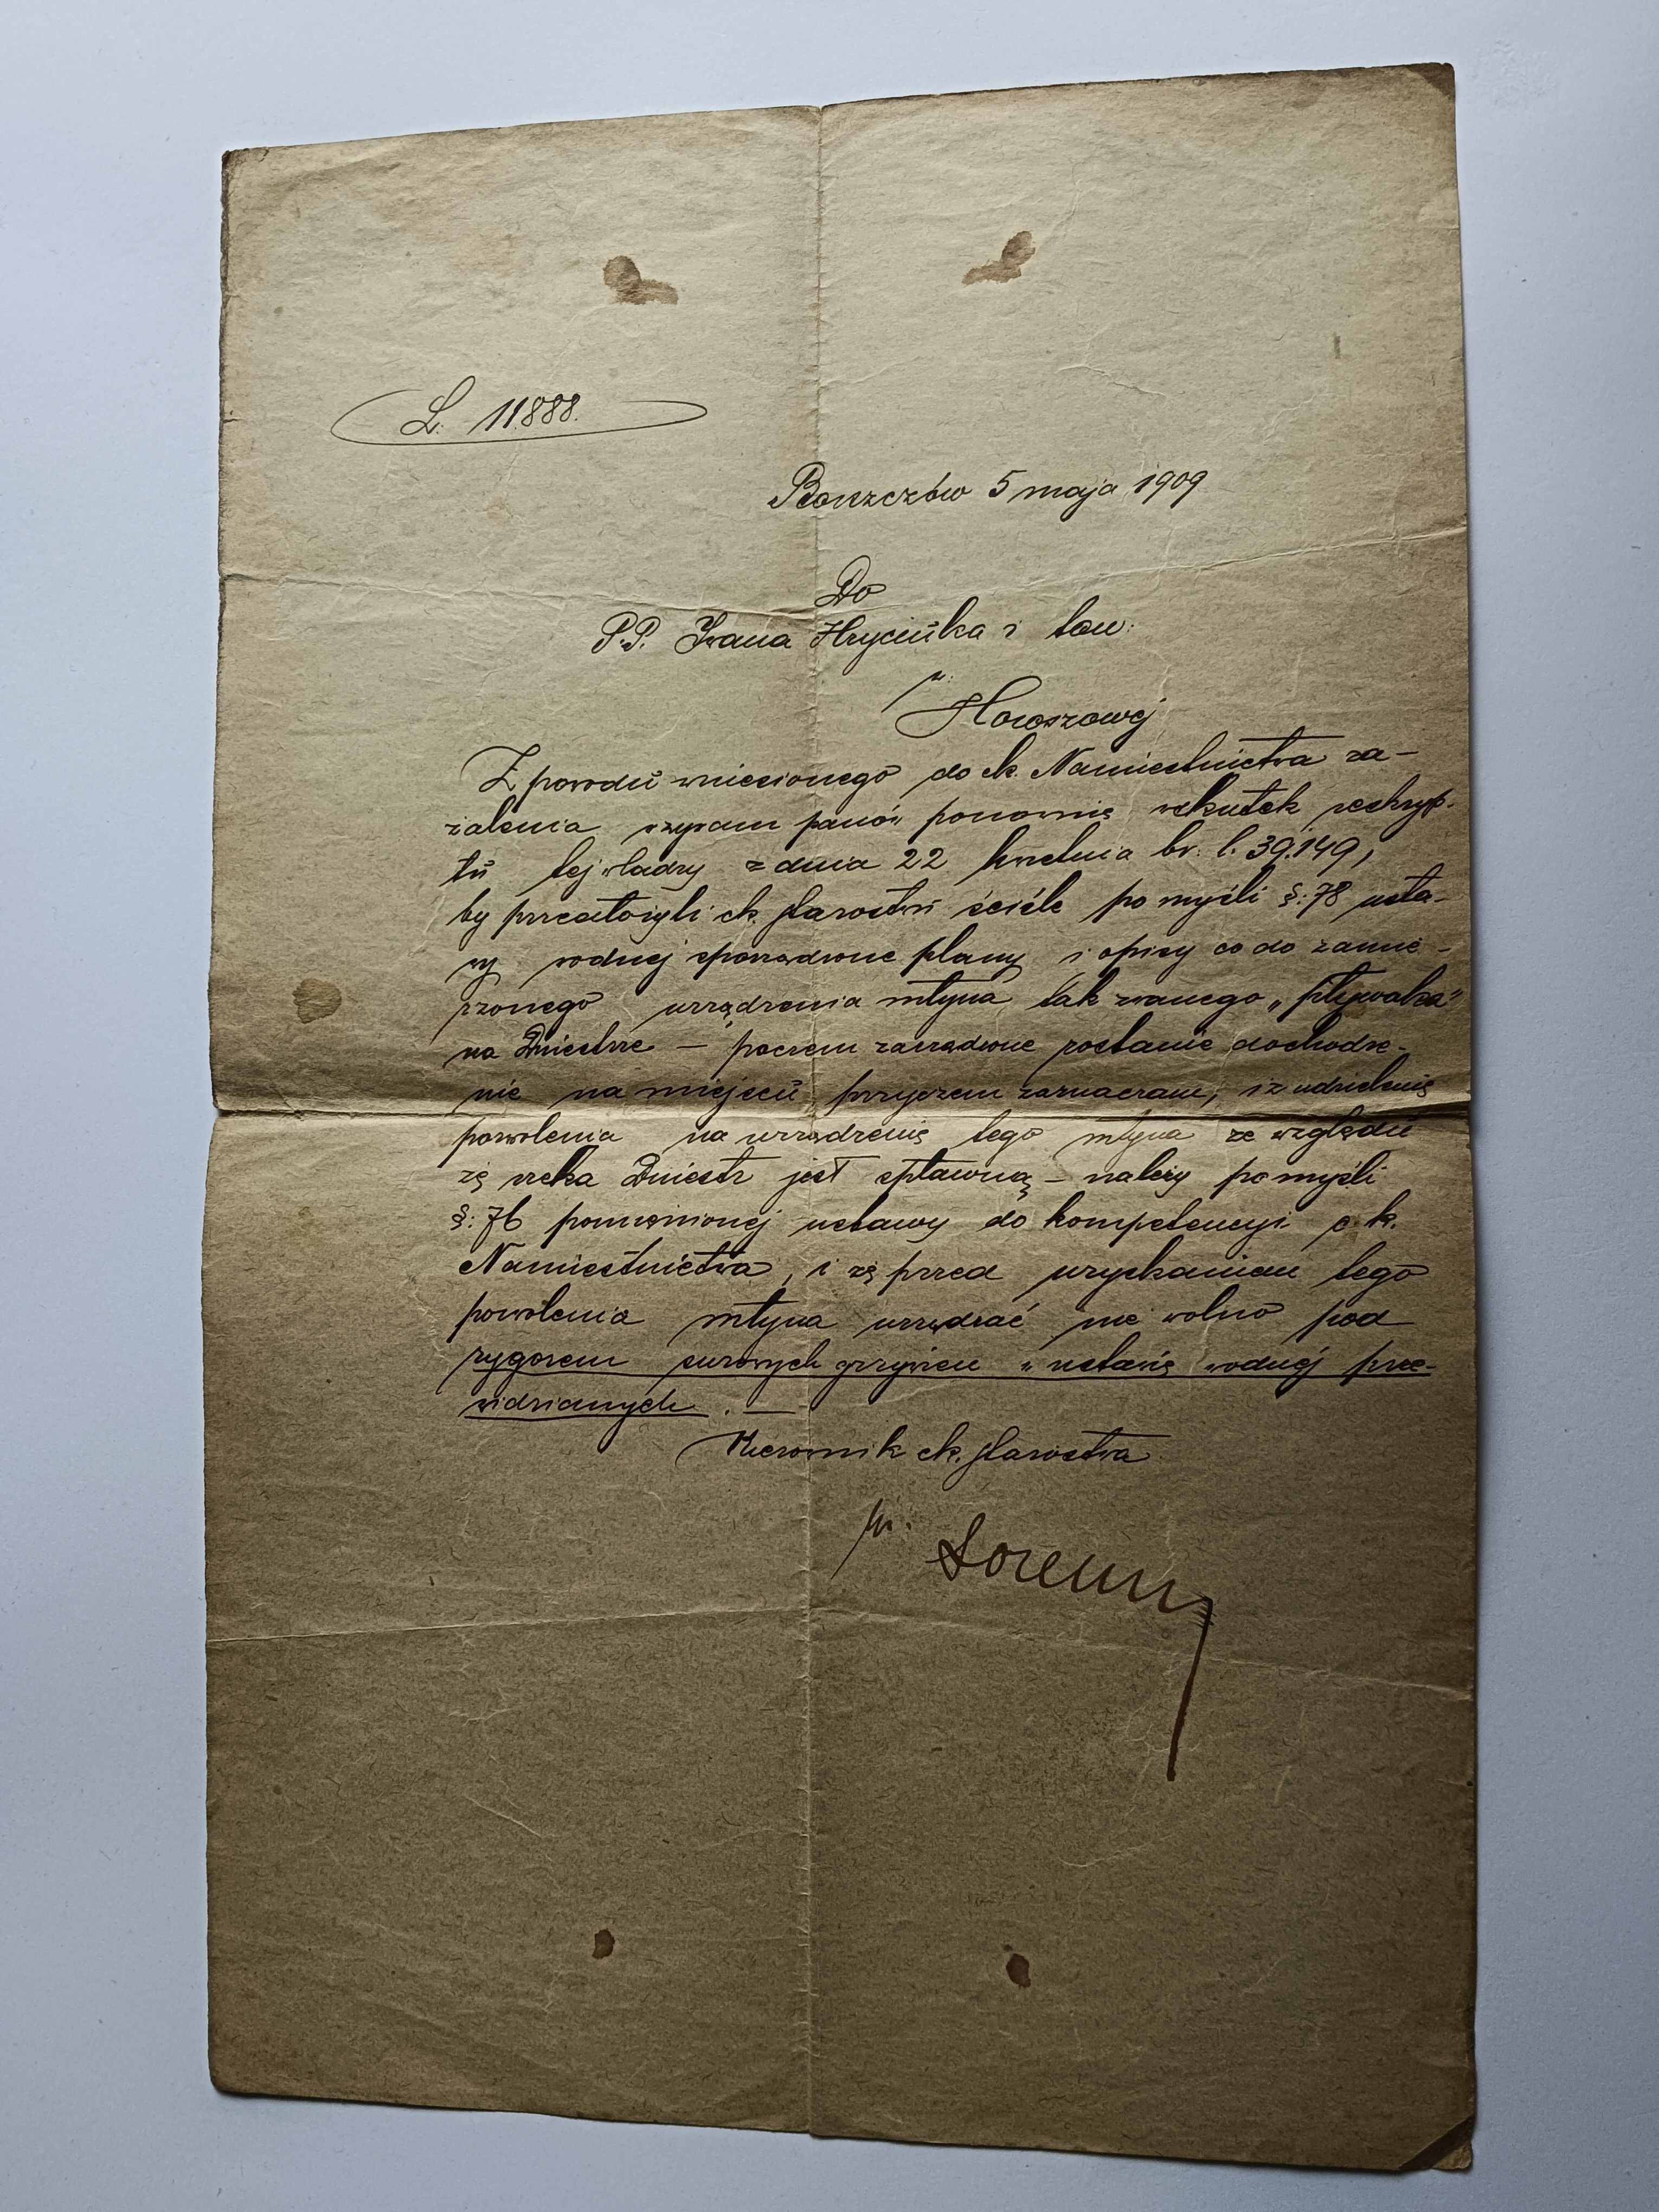 L. 11.888.
Borszczów 5 maja 1909
Do
P.P. Iwana Hryciuka i tow:
w
Horoszowej
Z powodu wniesionego do ck. Namiestnictwa za-
żalenia wzywam panów ponownie wskutek reskryp-
tu tej władzy z dnia 22 kwietnia br. l. 39.149,
by przedłożyli ck. Starostwu ściśle po myśli §: 78 usta-
wy wodnej sporządzone plany i opisy co do zamie-
rzonego urządzenia młyna tak zwanego „pływaka"
na Dniestrze — poczem zarządzone zostanie dochodze-
nie na miejscu przyczem zaznaczam, iż udzielenie
pozwolenia na urządzenie tego młyna ze względu
że rzeka Dniestr jest spławną — należy po myśli
§: 76 pomienionej ustawy do kompetencyi c. k.
Namiestnictwa, i że przed uzyskaniem tego
pozwolenia młyna urządzać nie wolno pod
rygorem surowych grzywien w ustawie wodnej prze-
widzianych. —
Kierownik ck. Starostwa